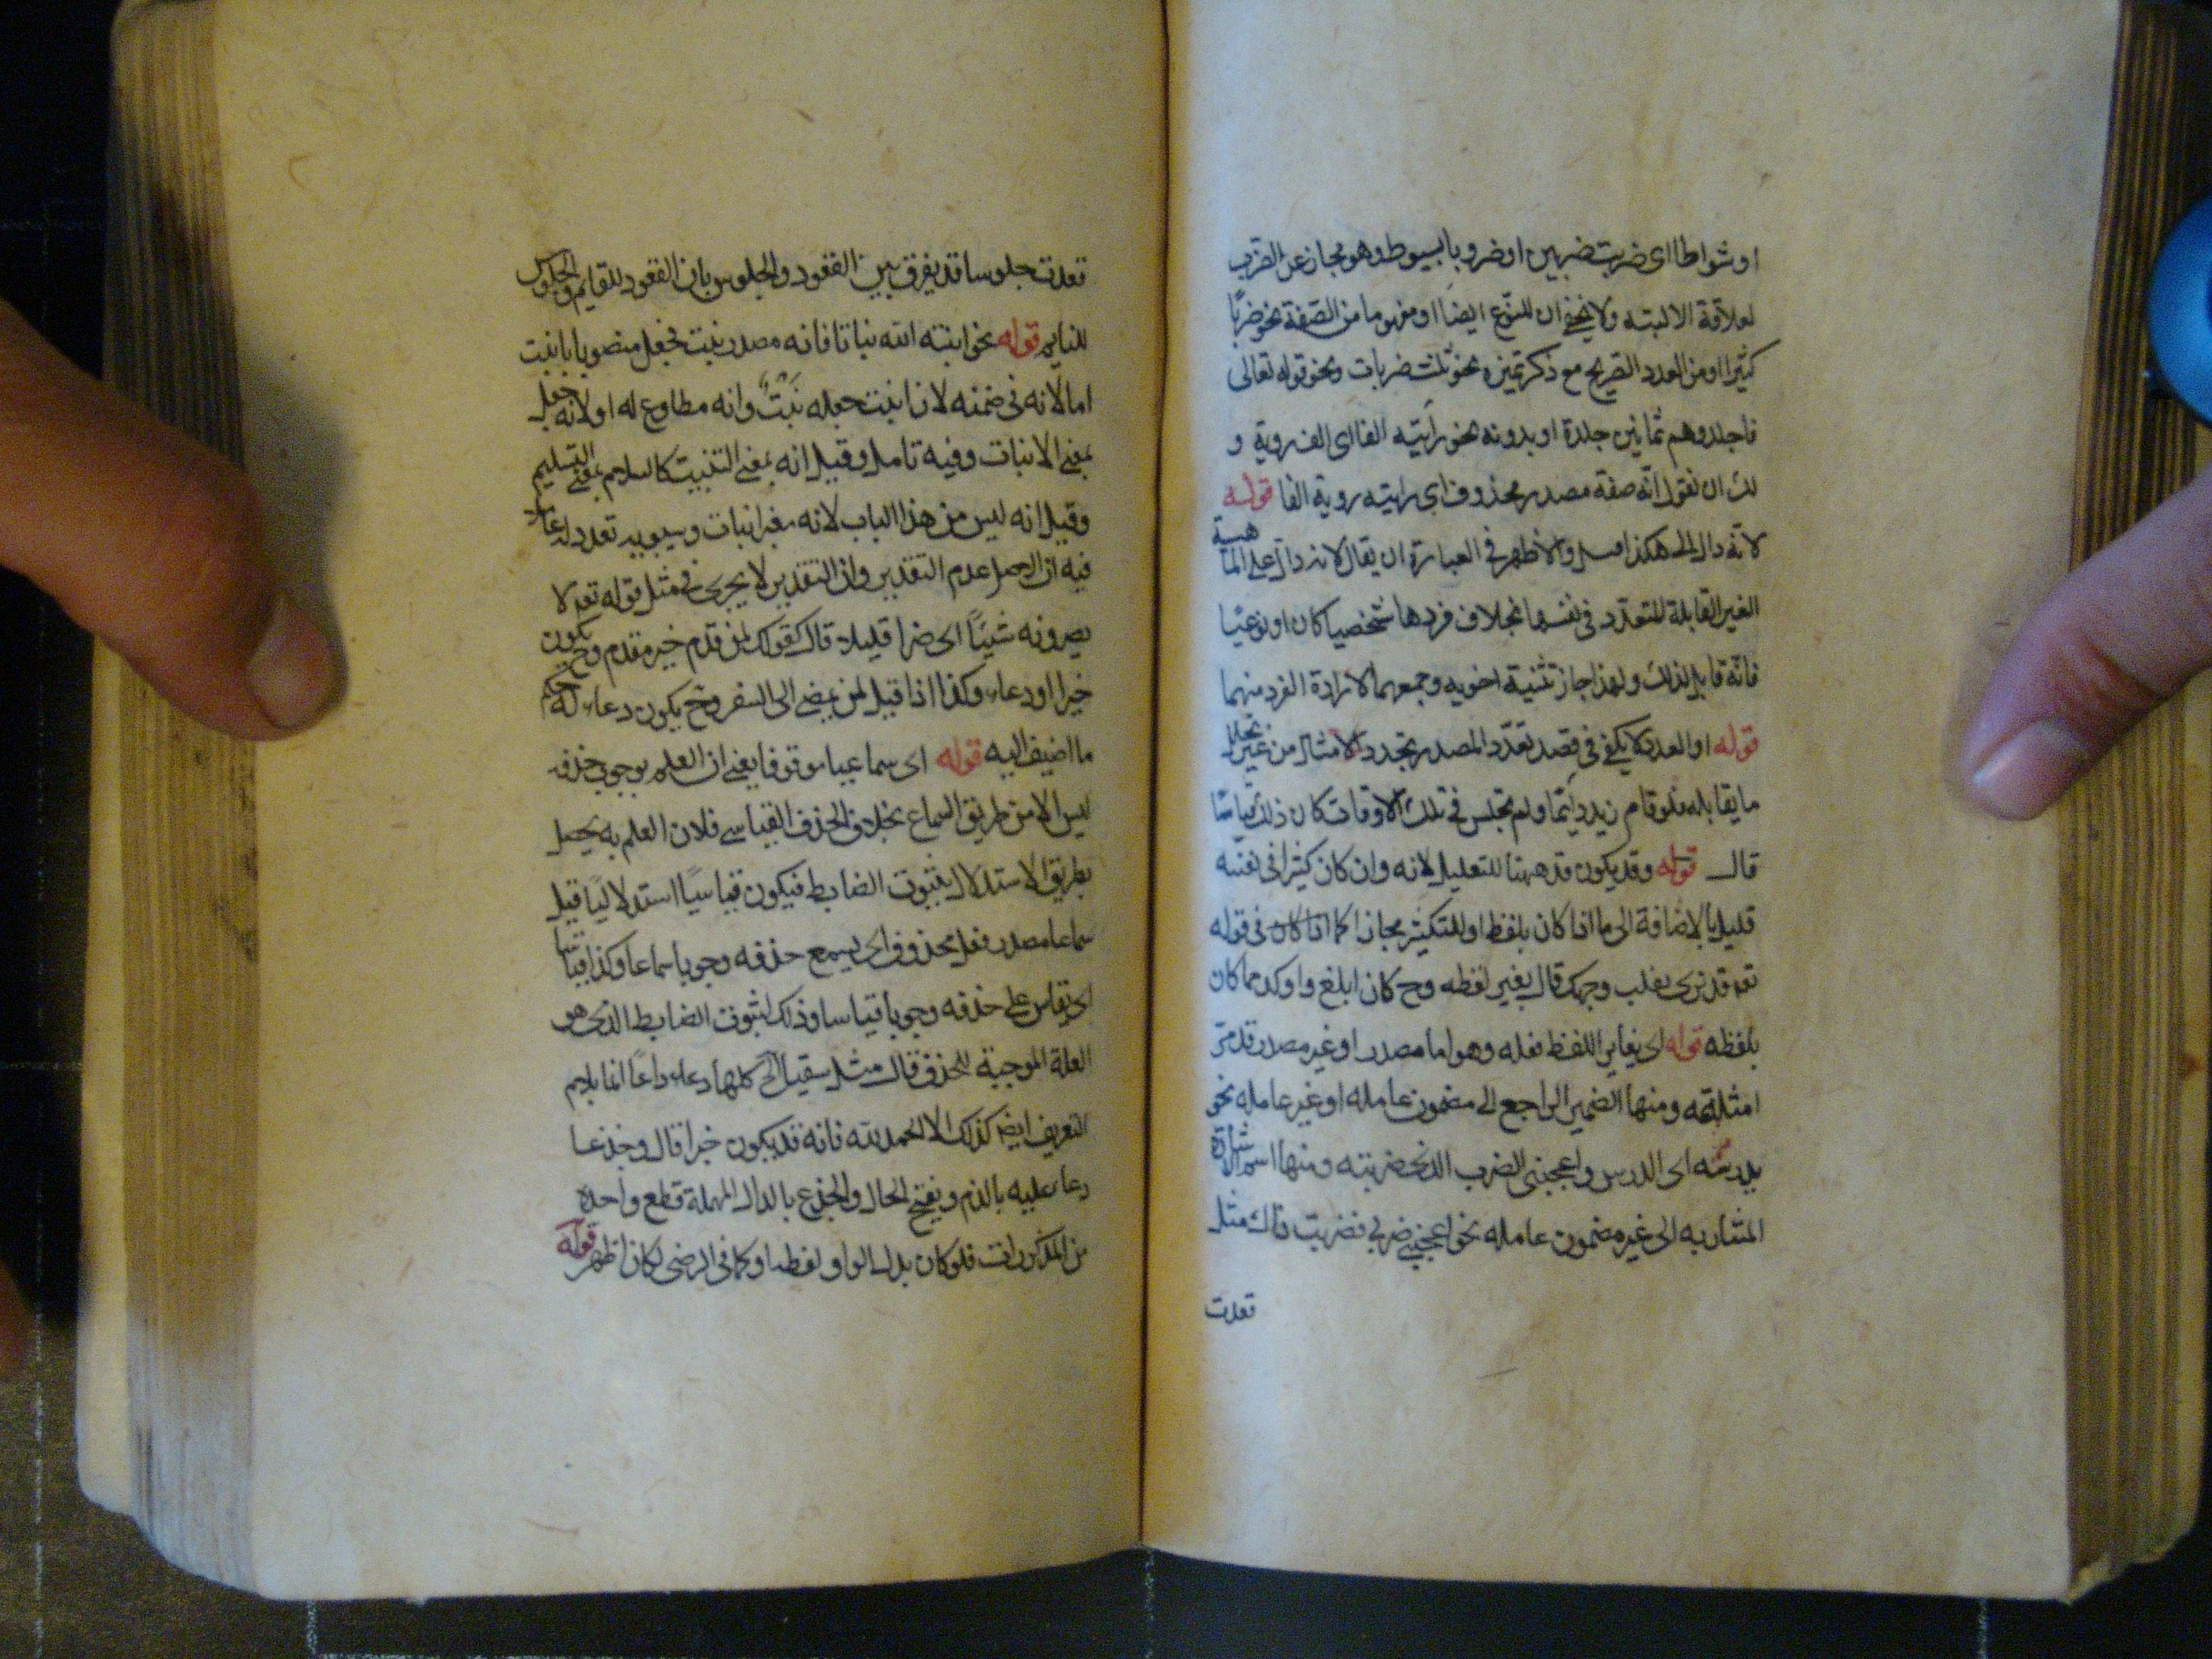 او شواطا اى ضربت ضربين او ضروبا بسيوط وهو مجاز عن الضرب
لعلاقة الالبته ولا يخفى ان للنوع ايضا او مفهوما من الصفة نحو ضربا
كثيرا او من العدد الصريح مع ذكر تميزه نحو ثلث ضربات ونحو قوله تعالى
فاجلدوهم ثمانين جلدة او بدونه نحو رايته الفا اى الف روية و
لك ان نقول انه صفة مصدر محذوف اى رايته روية الفا قوله
لانه دال الخ هكذا قيل والاظهر فى العبارة ان يقال لانه دال على الماهية
الغير القابلة للتعدد فى نفسها بخلاف فردها شخصيا كان او نوعيا
فانه قابل لذلك ولهذا جاز تثنية اخويه وجمعهما لارادة الفرد منهما
قوله او العدد لا يكفى فى قصد تعدد المصدر تجدد الامثال من غير تخلل
ما يقابله فلو قام زيد دائما ولم تجلس فى تلك الاوقات كان ذلك قياسا
قال قوله وقد يكون قد ههنا للتعليل لانه وان كان كثيرا فى نفسه
قليل بالاضافة الى ما اذا كان بلفظ او للتكثير مجازا كما اذا كان فى قوله
تعه قد نرى تقلب وجهك قال بغير لفظه وح كان ابلغ واوكد مما كان
بلفظه قوله اى يغاير اللفظ فعله وهو اما مصدر او غير مصدر قد مر
امثلته ومنها الضمير الراجع الى مضمون عامله او غير عامله نحو
يدرسه اى الدرس واعجبنى الضرب الذى ضربته ومنها اسم الاشارة
المشار به الى غير مضمون عامله نحو اعجبنى ضربى فضربت ذلك مثل
قعدت
قعدت جلوسا قد يفرق بين القعود والجلوس بان القعود للقايم والجلوس
للنايم قوله نحو انبته الله نباتا فانه مصدر نبت فجعل منصوبا بانبت
اما لانه فى ضمنه لان انبت جعله نبت وانه مطاوع له او لانه جعل
بمعنى الانبات وفيه تامل وقيل انه بمعنى التنبيت كالسلام بمعنى التسليم
وقيل انه ليس من هذا الباب لانه بغير انبات وسيبويه تعدد
فيه ان الاصل عدم التقدير وان التقدير لا يجرى فى مثل قوله تعه لا
يضرونه شيئا اى ضرا قليلا قال كقولك لمن قدم خير مقدم وح يكون
خيرا او دعاء وكذا اذا قيل لمن يمضى الى السفر وح يكون دعاء له حكم
ما اضيف اليه قوله اى سماعيا موقوفا يعنى ان العلم بوجوب حذفه
ليس الا من طريق السماع بخلاف الحذف القياسى فلان العلم به يحصل
بطريق الاستدلال بثبوت الضابط فيكون قياسيا استدلاليا قيل
سماعا مصدر فعل محذوف اى يسمع حذفه وجوبا سماعا وكذا قياسا
اى يقاس على حذفه وجوبا قياسا وذلك لثبوت الضابط الذى هو
العلة الموجبة للحذف قال مثل سقيا الخ كلها دعاء
التعريف ايض كذلك الا الحمد لله فانه قد يكون خبرا قال وجدعا
دعاء عليه بالذم ويفتح الحال والجدع بالدال المهملة قطع واحدة
من المذكورات فلو كان بدل الواو لفظه او كما فى الرضى لكان اظهر قوله